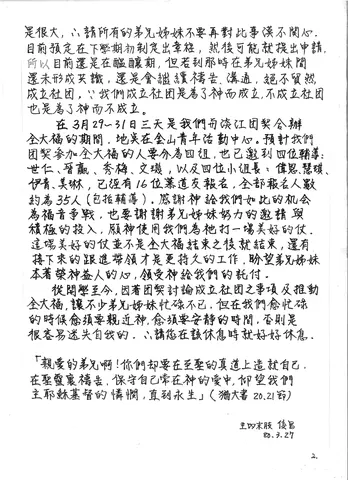 是很大, ∴請所有的弟兄姊妹不要再對此事漠不關心.
目前預定在下學期初制定出章程, 然後可能就提出申請.
所以目前還是在醞釀期, 但若到那時在弟兄姊妹間
還未形成共識, 還是會繼續禱告、溝通, 絕不貿然
成立社團. ∵我們成立社團是為了神而成立, 不成立社團
也是為了神而不成立.
在3月29~31日三天是我們與淡江團契合辦
全大福的期間, 地點在金山青年活動中心. 預計我們
團契參加全大福的人要分為四組, 也已邀到四位輔導:
世仁、 、秀梅、文璣, 以及四位小組長: 偉恩、慧頻、
伊青、美琳, 已經有16位慕道友報名, 全部報名人數
約為35人(包括輔導). 感謝神給我們如此的機會
為福音爭戰, 也要謝謝弟兄姊妹努力的邀請與
積極的投入. 願神使用我們為祂打一場美好的仗.
這場美好的仗並不是全大福結束之後就結束, 還有
接下來的跟進帶領才是更持久的工作. 盼望弟兄姊妹
本著榮神益人的心, 領受神給我們的託付.
從開學至今, 因著團契討論成立社團之事項及推動
全大福, 讓不少弟兄姊妹忙碌不已, 但在我們愈忙碌
的時候愈須要親近神, 愈須要安靜的時間, 否則是
很容易迷失自我的. ∴請您在該休息時就好好休息.
「親愛的弟兄啊!你們卻要在至聖的真道上造就自己,
在聖靈裏禱告、保守自己常在神的愛中, 仰望我們
主耶穌基督的憐憫, 直到永生」(猶大書 20.21節)
主內末肢
80.3.27
2.